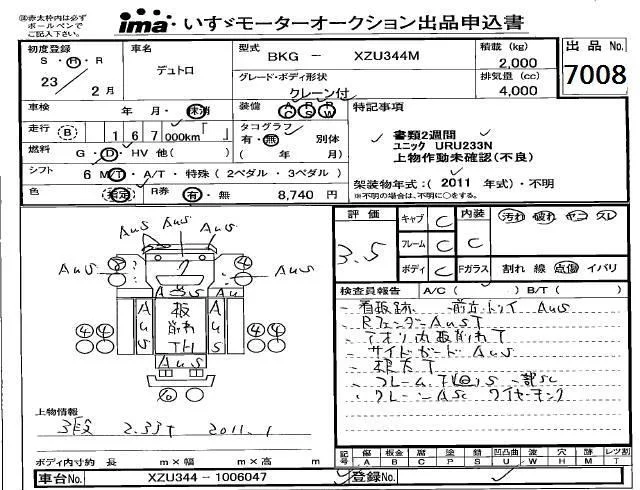 ※赤太枠内は必ず
ボールペンで
ご記入下さい。
ima いすゞモーターオークション出品申込書
初度登録 S・H・R 23 / 2月
車名 デュトロ
型式 BKG － XZU344M
グレード・ボディ形状 クレーン付
積載 (kg) 2,000
排気量 (cc) 4,000
出品 No. 7008
車検 年 月・抹消
装備 AC PS PW
走行 B 167,000km
タコグラフ 有・無 別体
( 年 月)
燃料 G・D・HV 他( )
シフト 6 M/T・A/T・特殊 (2ペダル・3ペダル)
色 R券 有・無 8,740 円
特記事項
書類2週間
ユニック URU233N
上物作動未確認(不良)
架装物年式:( 2011 年式)・不明
※不明の場合は、不明に○をする。
評価 3.5
キャブ C
フレーム C
ボディ C
内装 C 汚れ 破れ ヤニ スレ
Fガラス 割れ 線 点傷 イバリ
検査員報告 A/C( ) B/T( )
AuS AuS
AuS AuS
A A
Au
AuS 板 AuS
削れ
TH
④④ ④④
AuS
看板跡 AuS
Rフェンダー AuS T
アオリ内板削れ T
サイドガード AuS
根太 T
フレーム 一部SC
クレーン ASC
上物情報
3段 2.33T 2011.1
ボディ内寸約 長 m×幅 m×高 m
記号 傷 A 板金 B 腐 C 塗 P 錆 S 凹凸曲 U 波 W 穴 H 跡 M レツ割 T
車台No. XZU344 - 1006047
登録No.